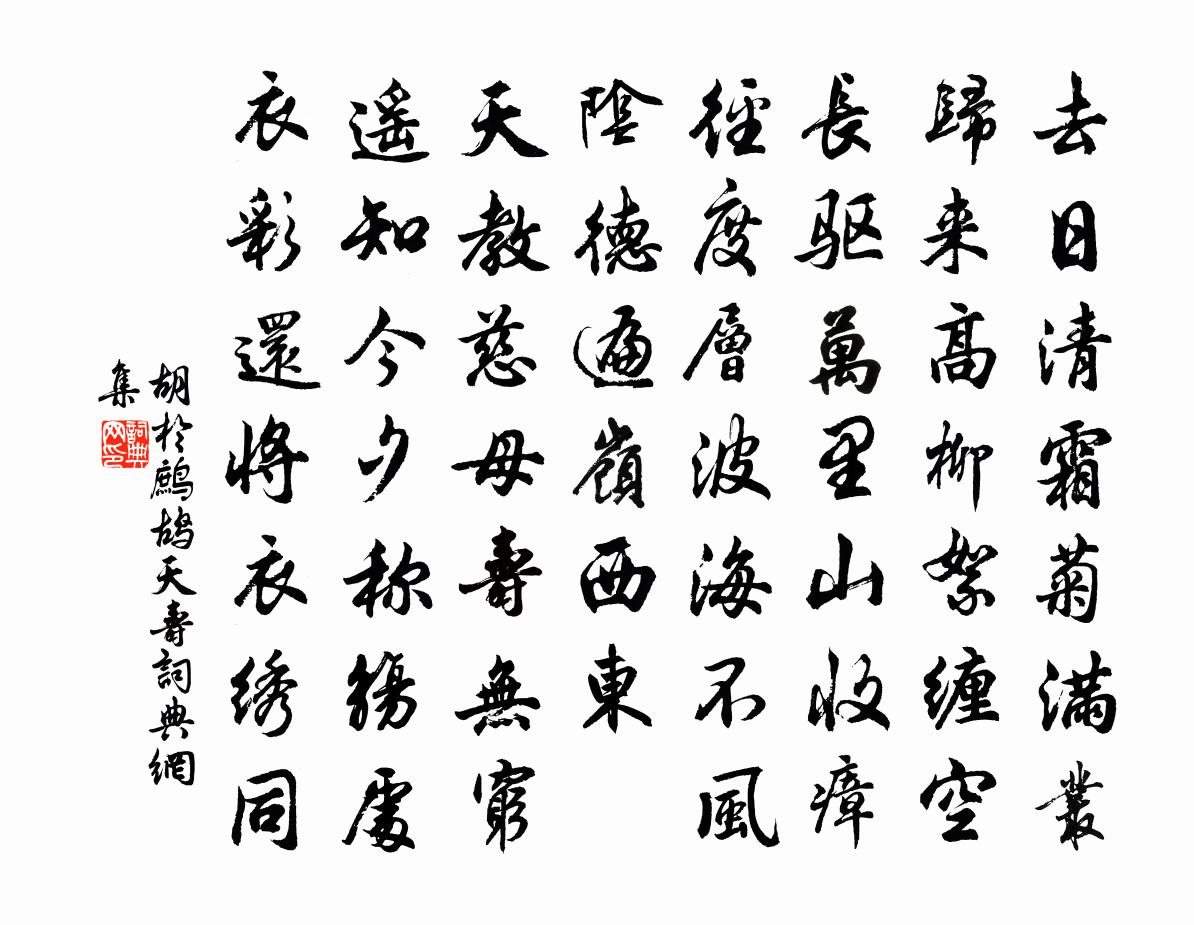 去日清霜菊滿叢
歸来高柳絮纏空
長驱萬里山收瘴
徑度層波海不風
陰德遍嶺西東
天教慈母壽無窮
遥知今夕称觴處
衣彩還將衣绣同
胡於鷓鴣天壽詞典網
集
詞典
网印